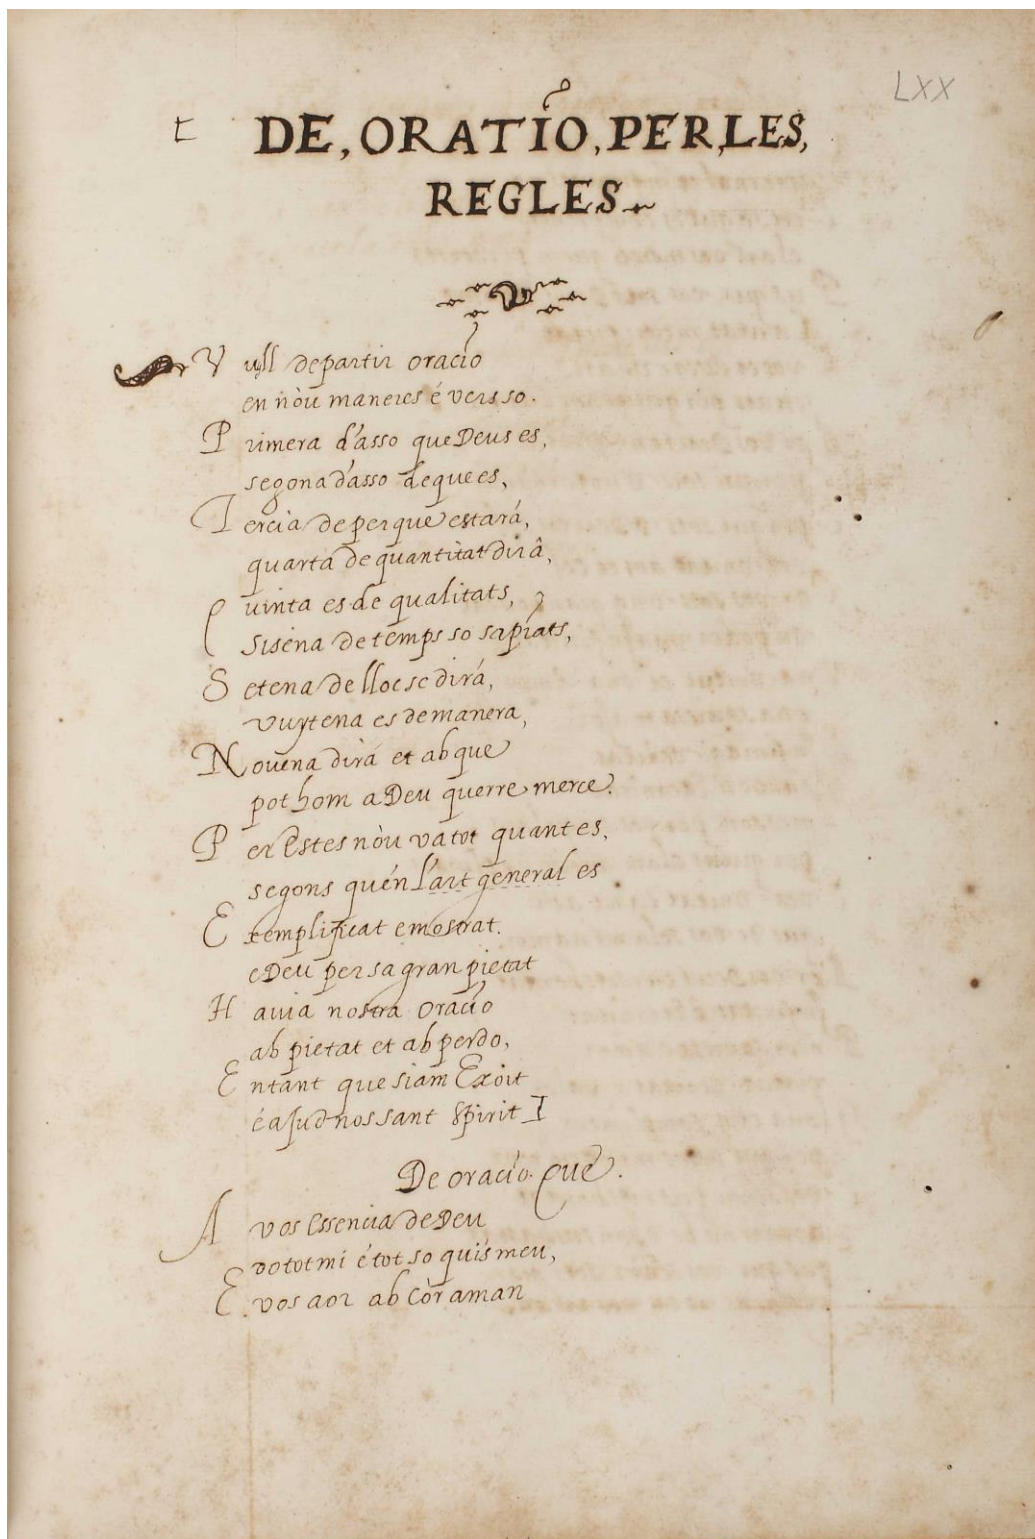 LXX
DE, ORATÍO, PER, LES,
REGLES
Vull departir oracío
en nòu maneres é versso.
Primera d'asso que Deus es,
segona d'asso de que es,
Tercia de per que estará,
quarta de quantitat dirâ,
Quinta es de qualitats,
Sisena de temps so sapíats,
Setena de lloc se dirá,
vuytena es de manera,
Novena dirá et ab que
pot hom a Deu querre merce.
Per Estes nòu va tot quant es,
segons qu'én l'art general es
Exemplificat e mostrat.
e Deu per sa gran pietat
Hauia nostra oracío
ab pietat et ab perdo,
En tant que siam Exòit
é ajud nos sant Spirit
De oracío. Que.
A vos Essencia de Deu
do tot mi é tot so quís meu,
E vos aor ab Còr aman